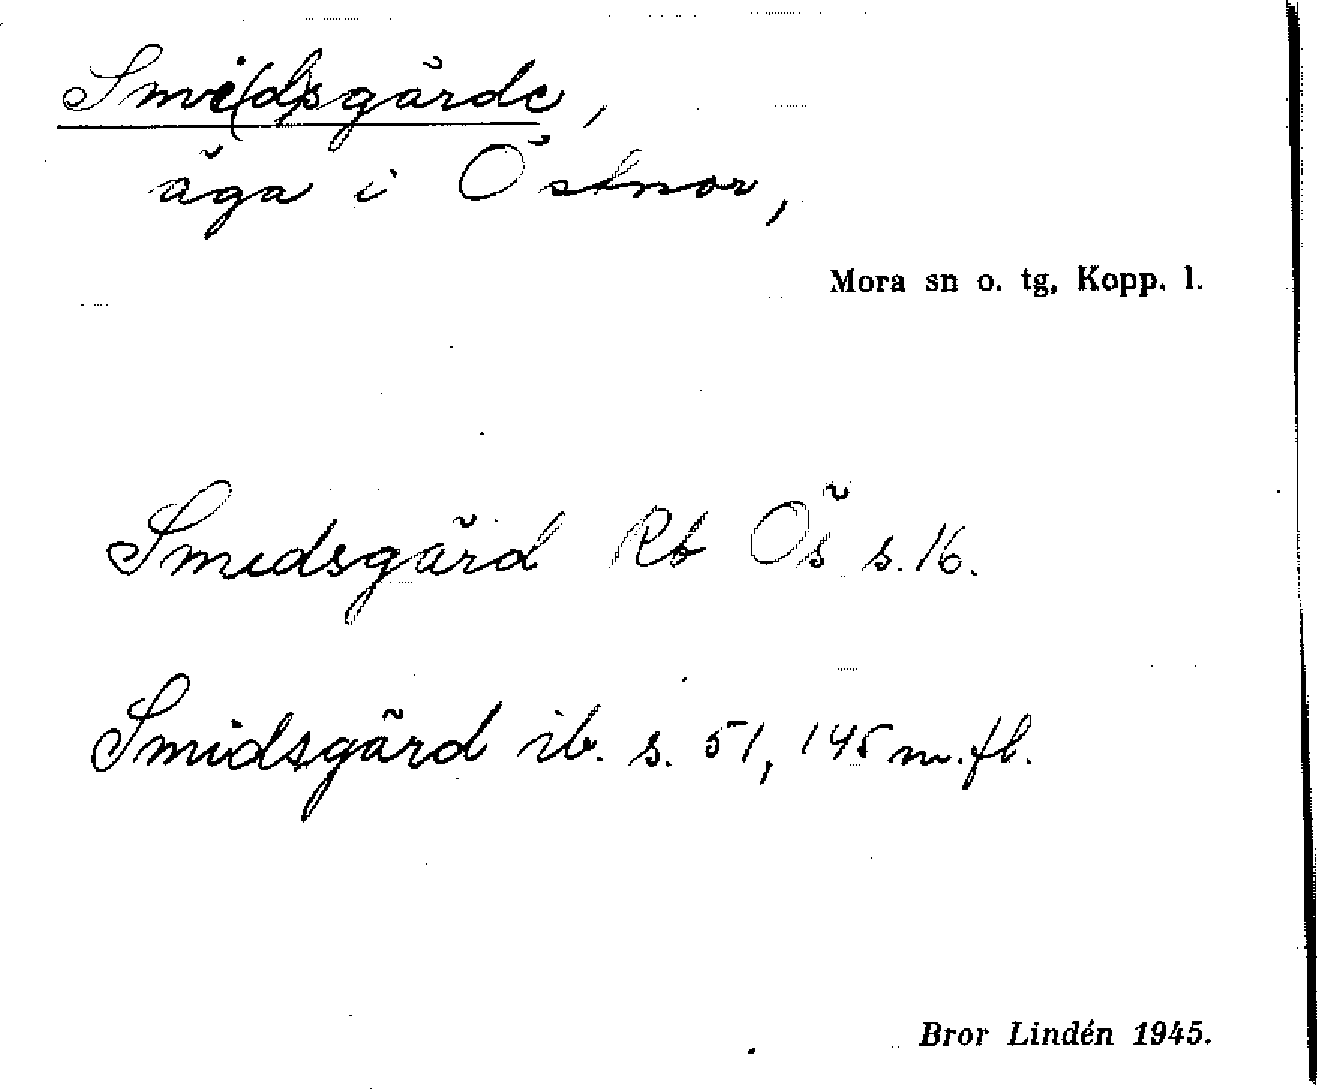 Smi(d)sgärde,
äga i Östnor,
Mora sn o. tg, Kopp. l.
Smidsgärd Rb Ös s. 16.
Smidsgärd ib. s. 51, 145 m. fl.
Bror Lindén 1945.